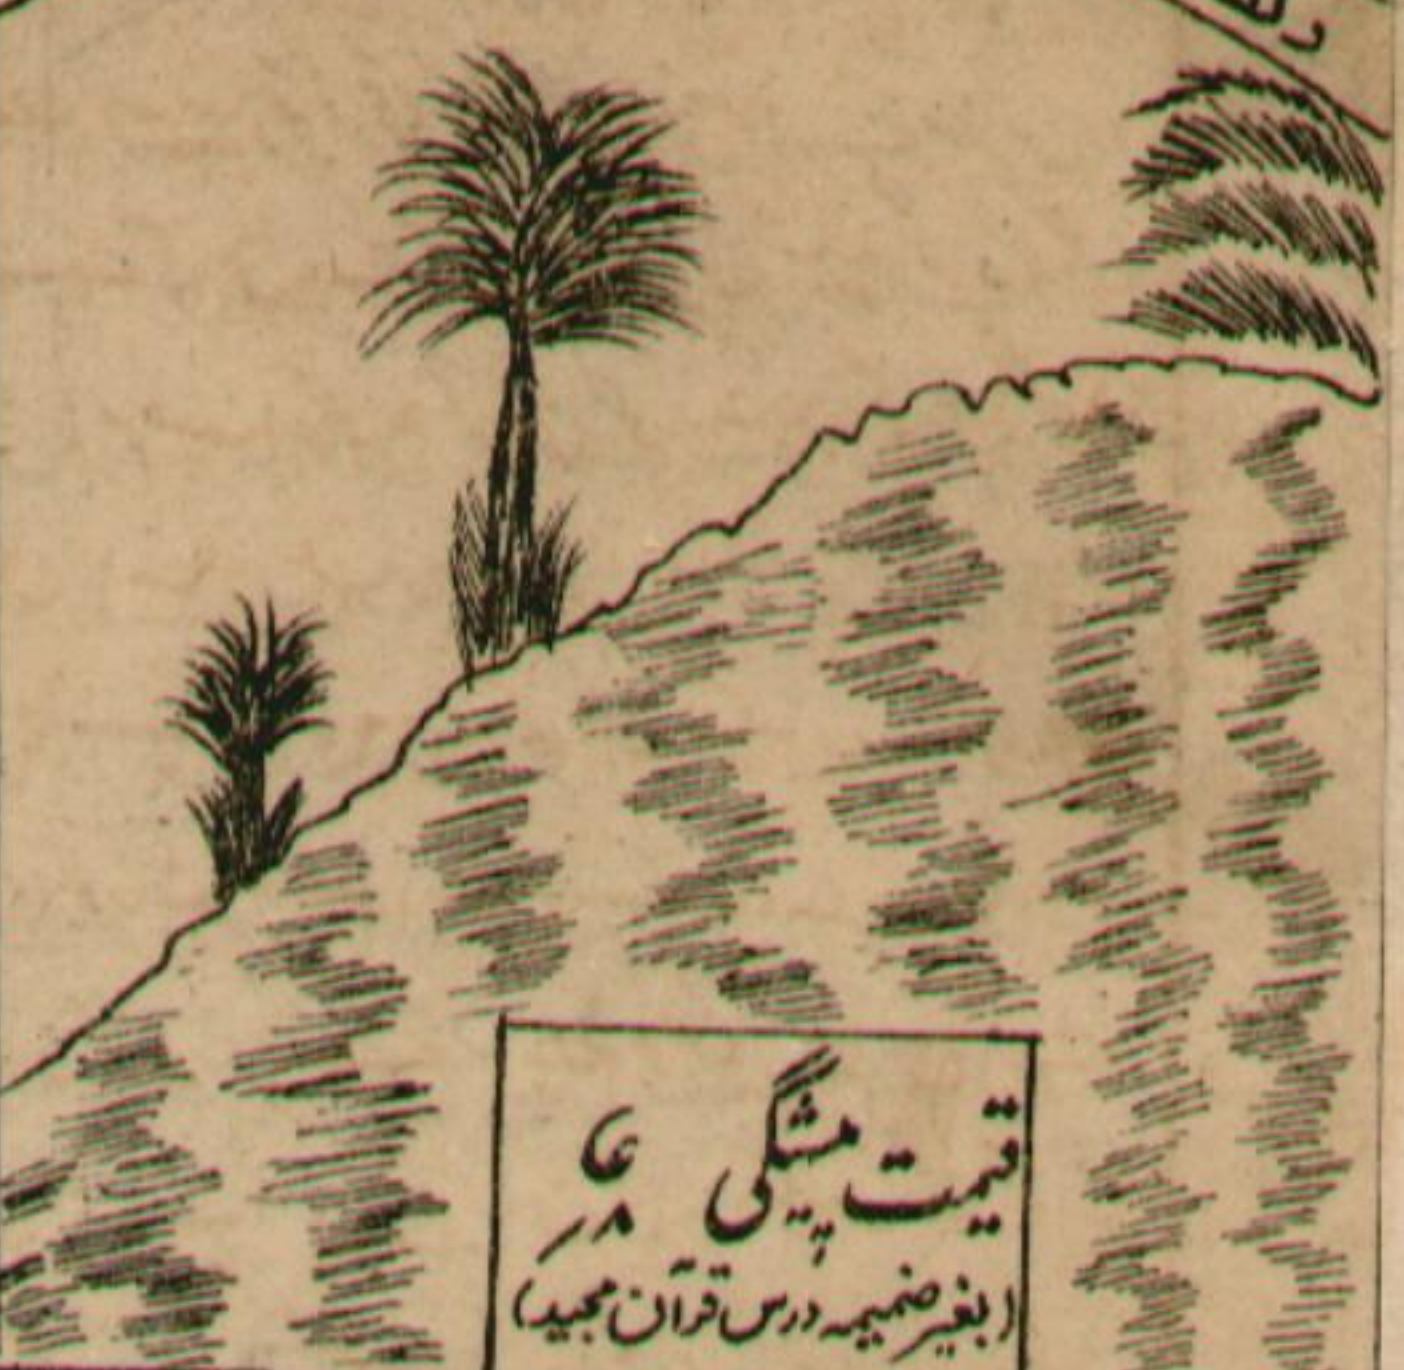 قیمت پیشگی ۸؍
(بغیر ضمیمہ درس قرآن مجید)